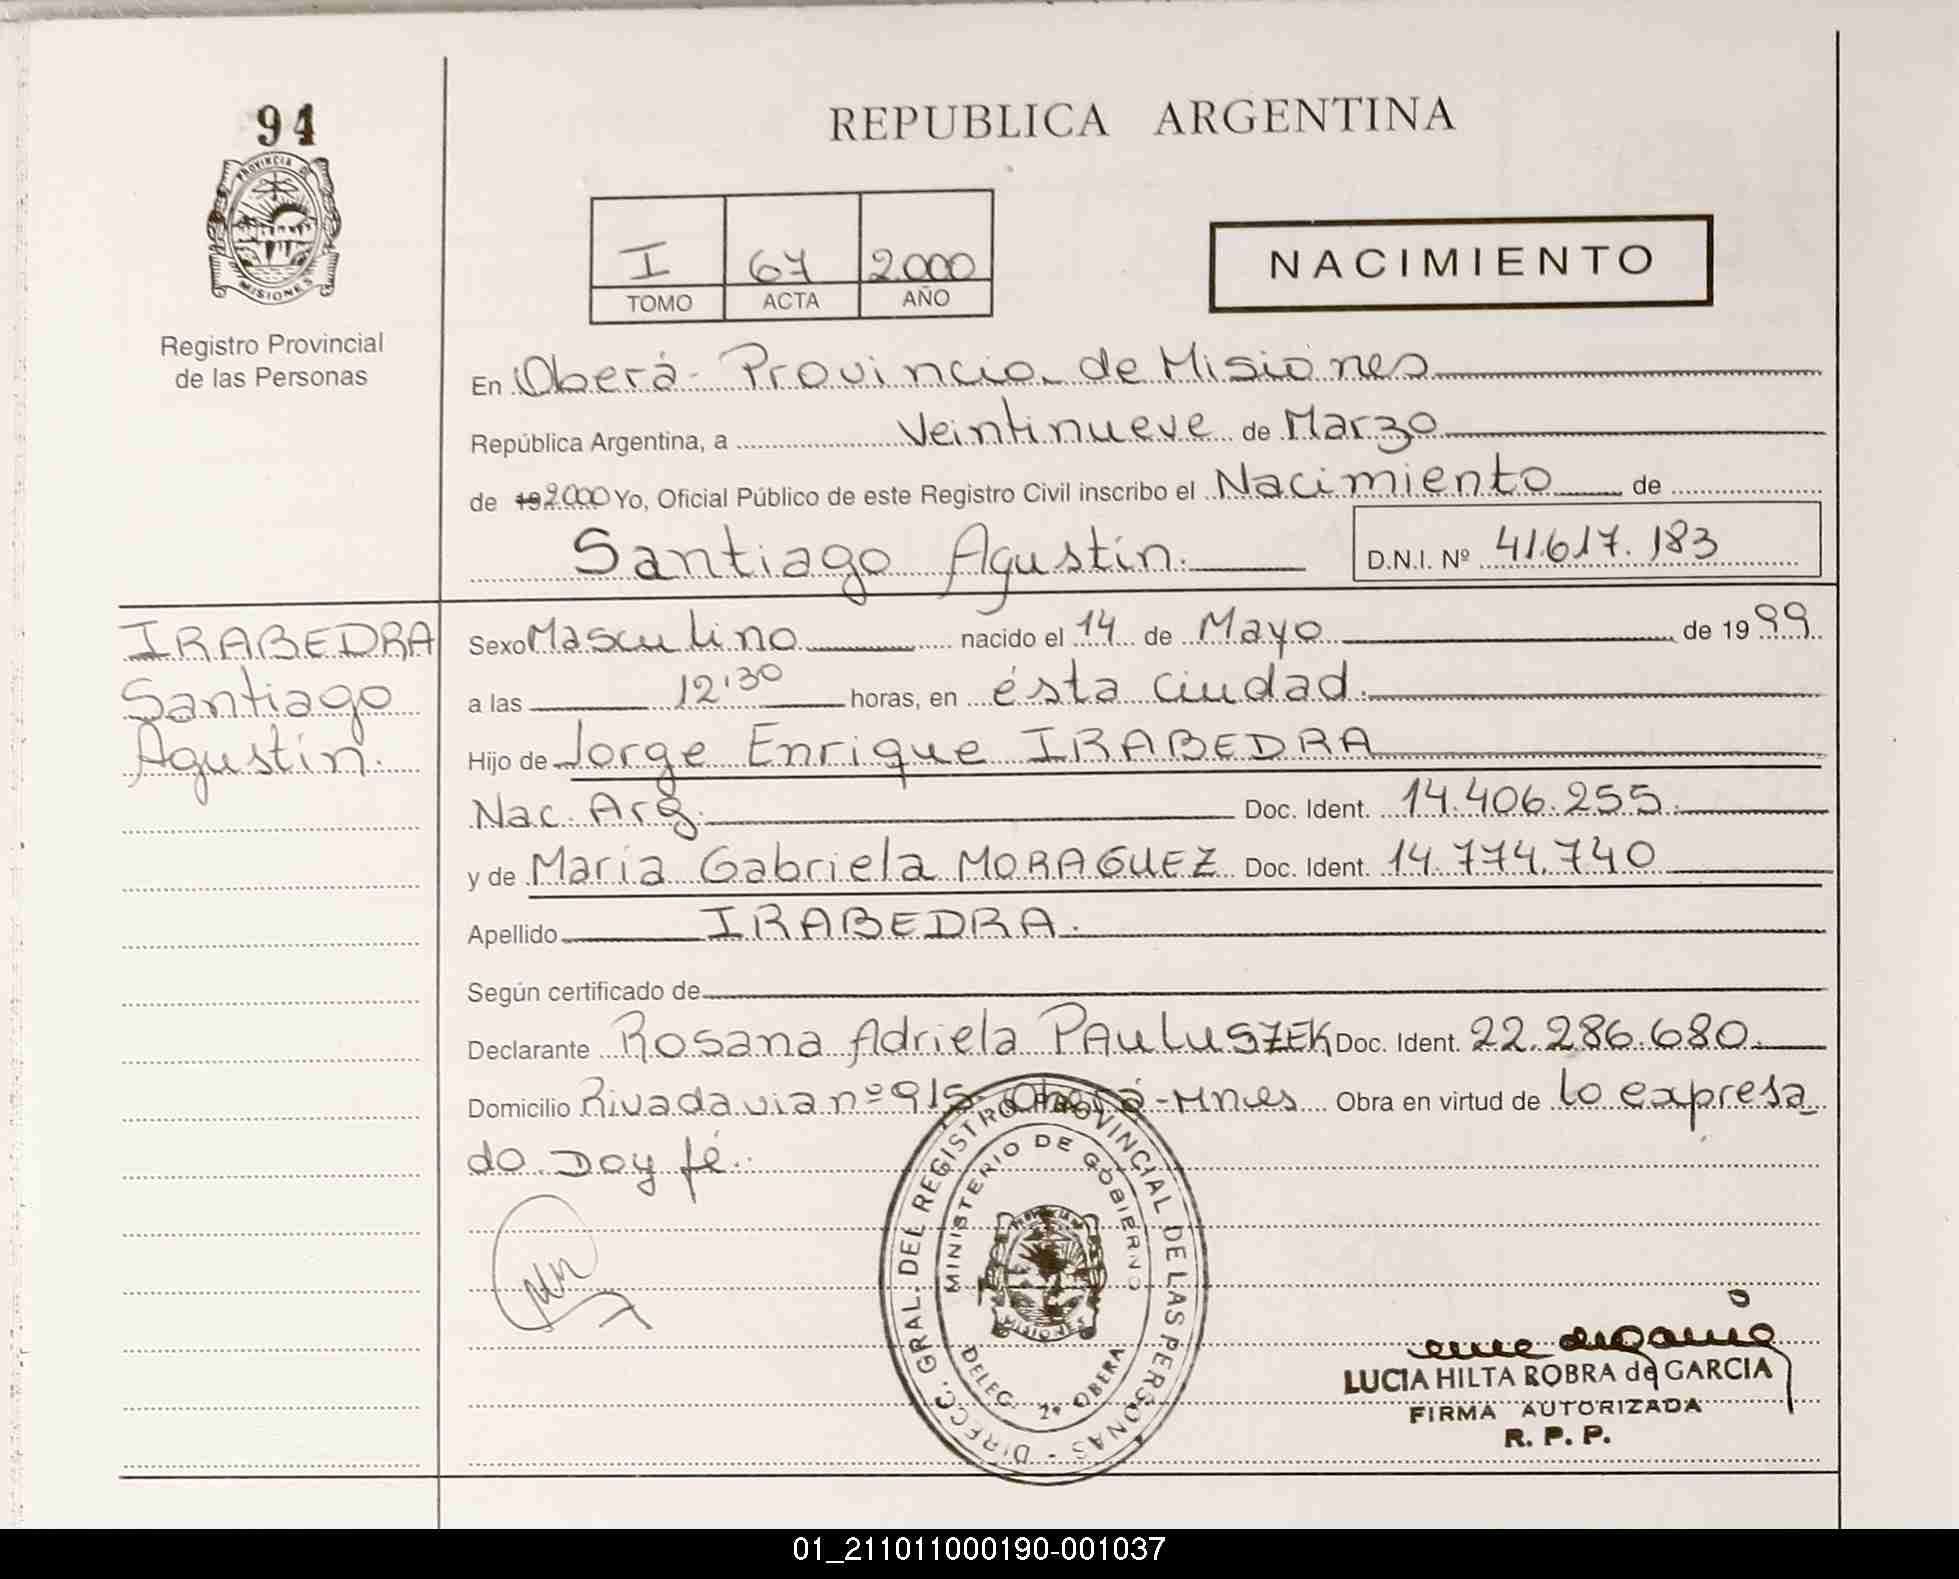 94
REPUBLICA ARGENTINA
PROVINCIA DE
MISIONES
Registro Provincial
de las Personas
I 67 2.000
TOMO ACTA AÑO
NACIMIENTO
En Oberá - Provincia de Misiones
República Argentina, a Veintinueve de Marzo
de 19 2.000 Yo, Oficial Público de este Registro Civil inscribo el Nacimiento de
Santiago Agustín. D.N.I. Nº 41.617.183
IRABEDRA
Santiago
Agustín.
Sexo Masculino nacido el 14 de Mayo de 19 99
a las 12'30 horas, en ésta ciudad.
Hijo de Jorge Enrique IRABEDRA
Nac. Arg. Doc. Ident. 14.406.255.
y de María Gabriela MORAGUEZ Doc. Ident. 14.774.740
Apellido IRABEDRA.
Según certificado de
Declarante Rosana Adriela PAULUSZEK Doc. Ident. 22.286.680.
Domicilio Rivadavia nº 915 Oberá - Mnes Obra en virtud de lo expresa
do Doy fé.
DIRECC. GRAL. DEL REGISTRO PROVINCIAL DE LAS PERSONAS -
MINISTERIO DE GOBIERNO
MISIONES
DELEG. 2ª OBERA
LUCIA HILTA ROBRA de GARCIA
FIRMA AUTORIZADA
R. P. P.
01_211011000190-001037